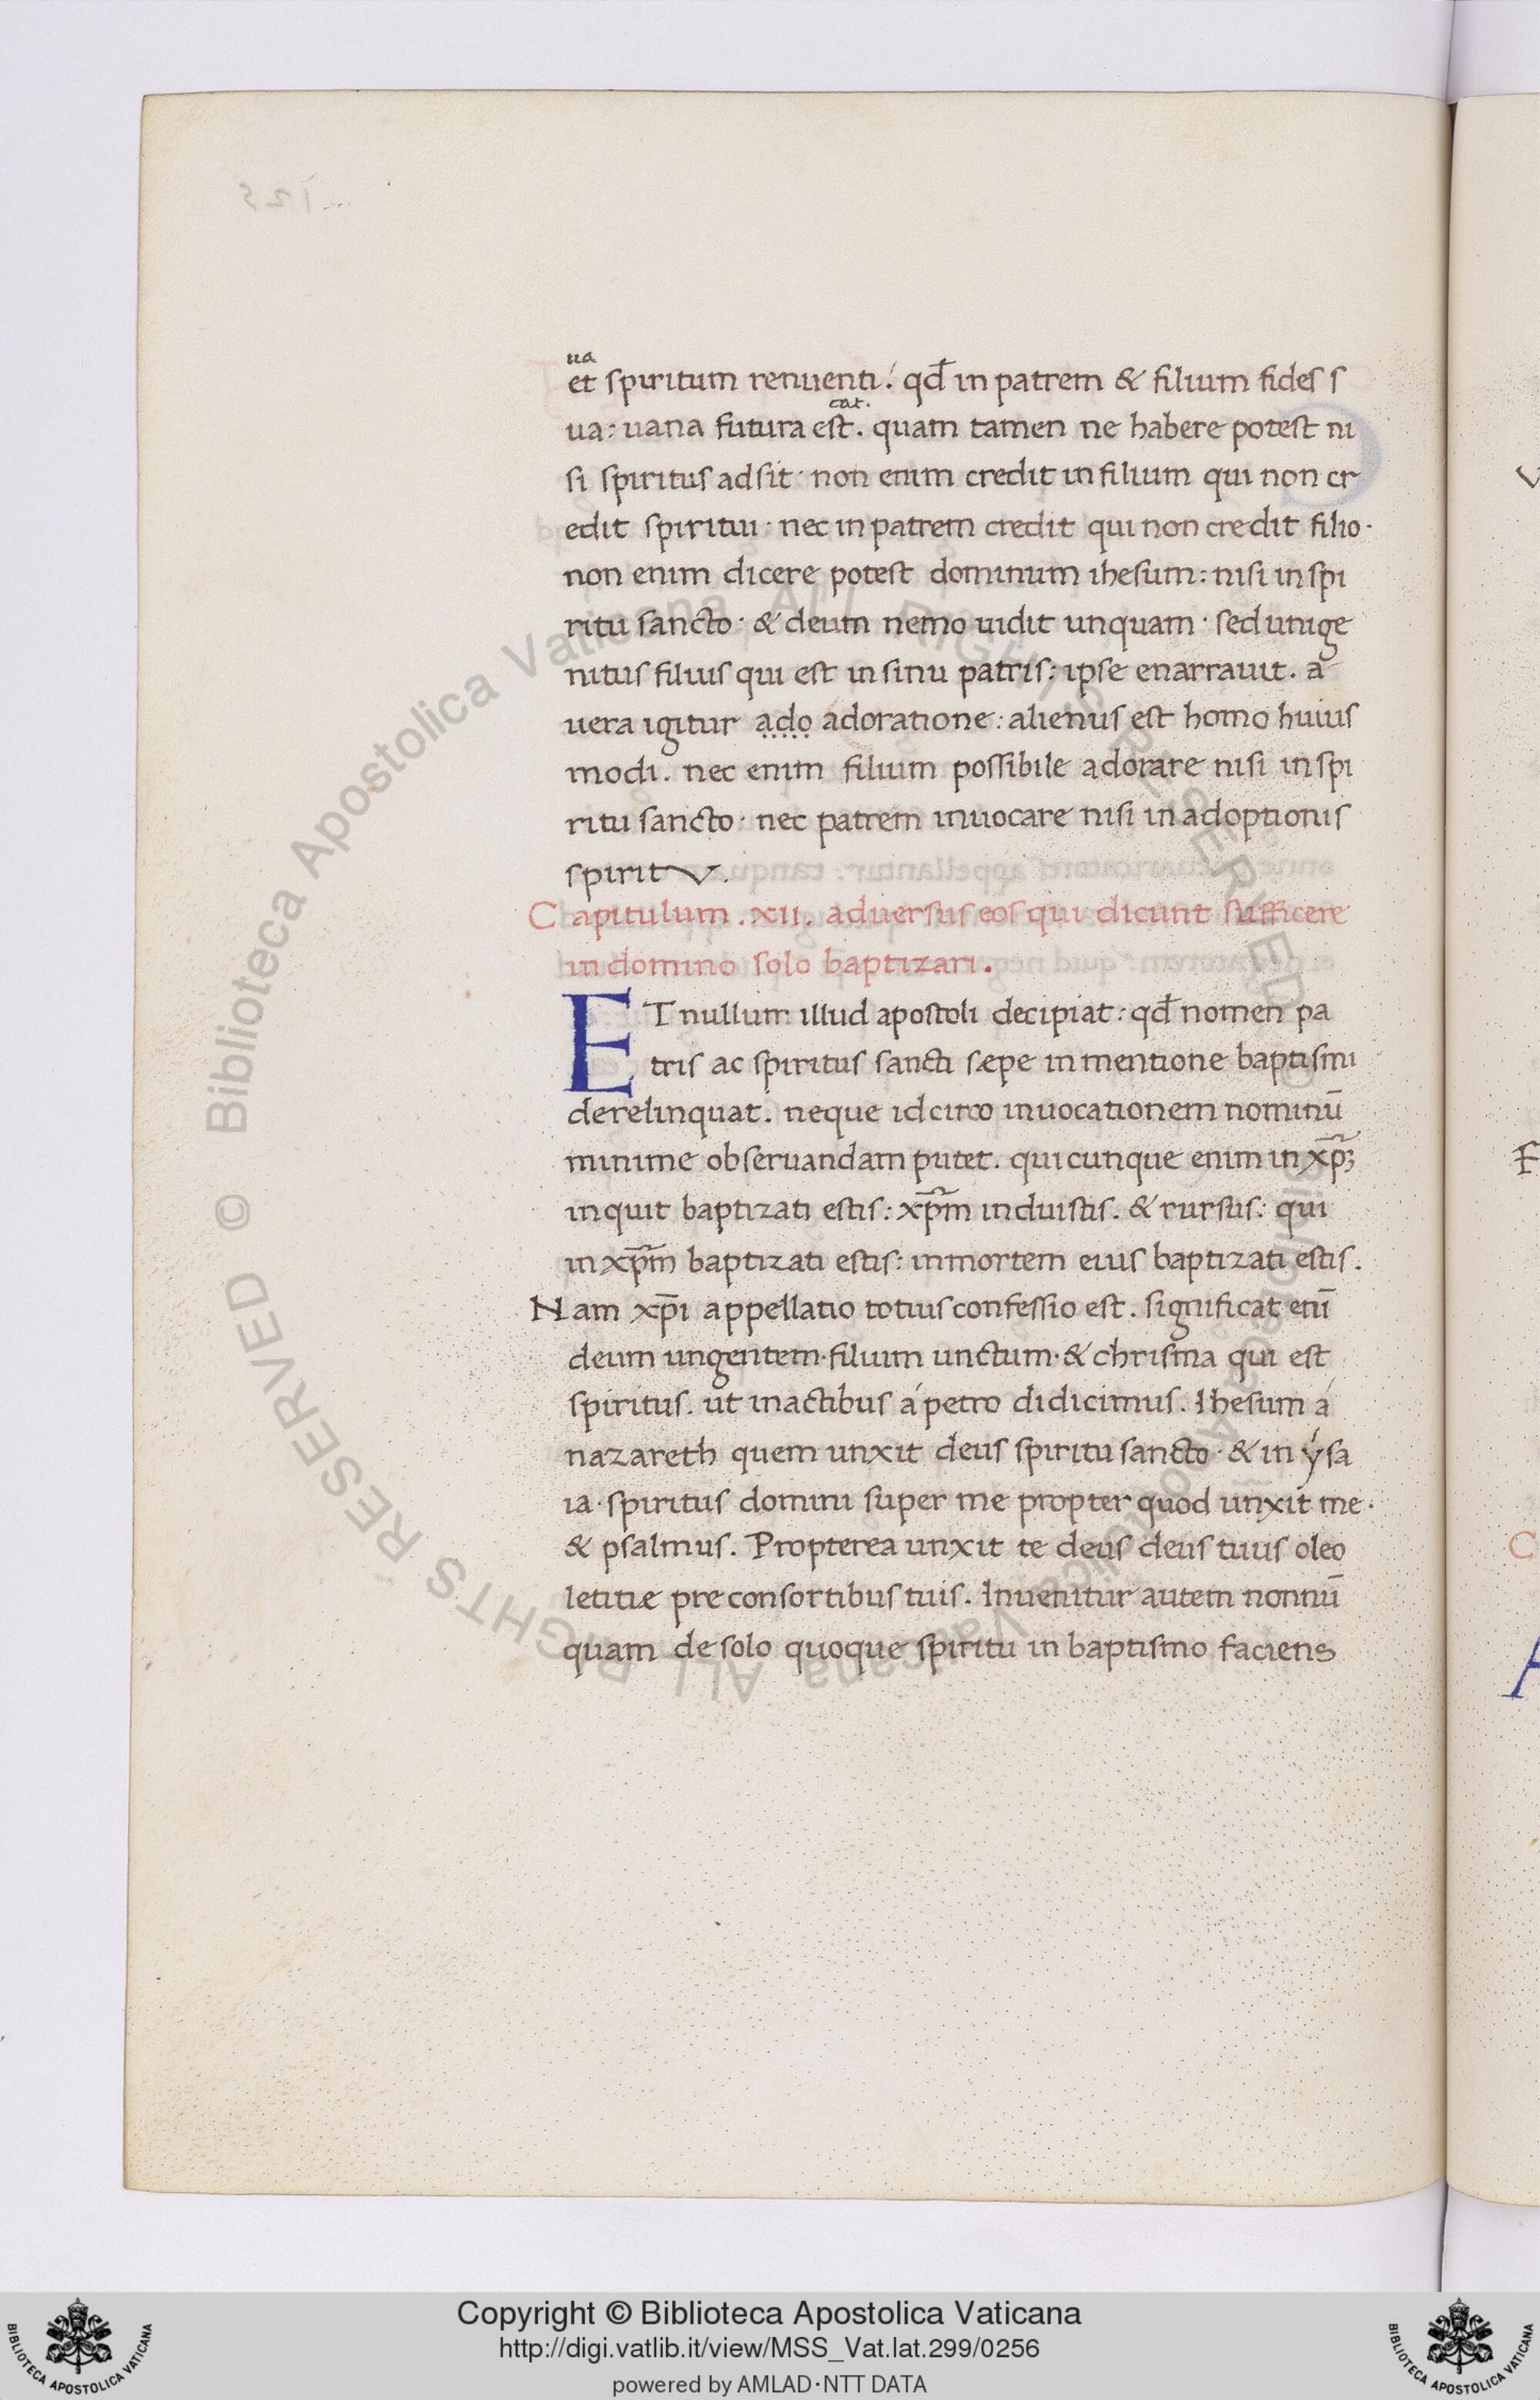 ua
et spiritum renuenti: qd̄ in patrem & filium fides s
cat.
ua: uana futura est. quam tamen ne habere potest ni
si spiritus adsit· non enim credit in filium qui non cr
edit spiritui· nec in patrem credit qui non credit filio·
non enim dicere potest dominum ihesum: nisi in spi
ritu sancto· & deum nemo uidit unquam· sed unige
nitus filius qui est in sinu patris: ipse enarrauit. a
uera igitur ado adoratione: alienus est homo huius
modi. nec enim filium possibile adorare nisi in spi
ritu sancto· nec patrem inuocare nisi in adoptionis
spiritV.
Capitulum .xii. aduersus eos qui dicunt sufficere
in domino solo baptizari.
ET nullum illud apostoli decipiat: qd̄ nomen pa
tris ac spiritus sancti sæpe in mentione baptismi
derelinquat. neque idcirco inuocationem nominū
minime obseruandam putet. quicunque enim in xp̄ꝫ
inquit baptizati estis: xp̄m induistis. & rursus: qui
in xp̄m baptizati estis: in mortem eius baptizati estis.
Nam xp̄i appellatio totius confessio est. significat enī
deum ungentem· filium unctum· & chrisma qui est
spiritus. ut in actibus á petro didicimus. Ihesum á
nazareth quem unxit deus spiritu sancto· & in ysa
ia· spiritus domini super me propter quod unxit me·
& psalmus. Propterea unxit te deus deus tuus oleo
letitiæ pre consortibus tuis. Inuenitur autem nonnū
quam de solo quoque spiritu in baptismo faciens
125
© Biblioteca Apostolica Vaticana ALL RIGHTS RESERVED
Copyright © Biblioteca Apostolica Vaticana
http://digi.vatlib.it/view/MSS_Vat.lat.299/0256
powered by AMLAD·NTT DATA
BIBLIOTECA APOSTOLICA VATICANA
BIBLIOTECA APOSTOLICA VATICANA